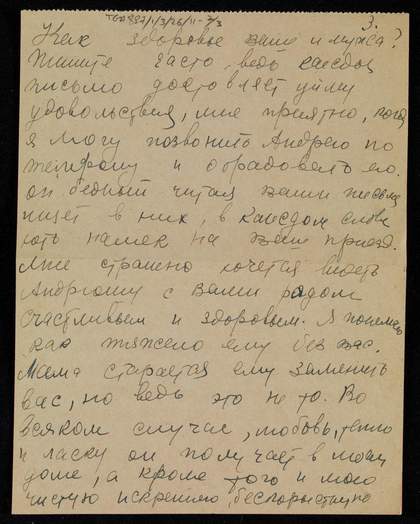 3.
Как здоровье ваше и мужа?
Пишите часто, ведь каждое
письмо доставляет уйму
удовольствия, мне приятно, когда
я могу позвонить Андрею по
телефону и обрадовать его.
он бедный читая ваши письма
ищет в них, в каждом слове
хоть намек на ваш приезд.
Мне страшно хочется видеть
Андрюшу с вами рядом
счастливым и здоровым. Я понимаю
как тяжело ему без вас.
Мама старается ему заменить
вас, но ведь это не то. Во
всяком случае, любовь, тепло
и ласку он получает в моем
доме, а кроме того и мою
чистую искреннюю, беспорыстную